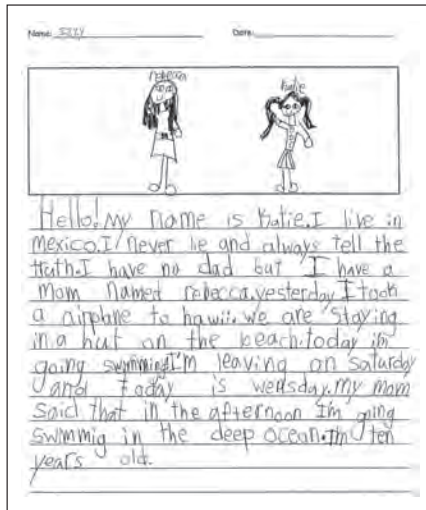 Name: Izzy Date:
rebecca
Katie
Hello! My name is Katie. I live in
mexico. I never lie and always tell the
truth. I have no dad but I have a
mom named rebecca. yesterday I took
a airplane to hawii. we are staying
in a hut on the beach. today im
going swimming. I'm leaving on saturday
and today is wensday. my mom
said that in the afternoon I'm going
swimmig in the deep ocean. I'm ten
years old.